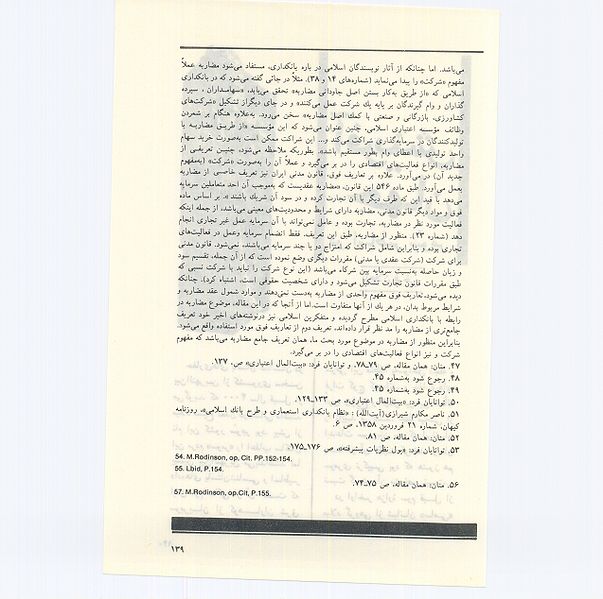 می‌باشد. اما چنانکه از آثار نویسندگان اسلامی در باره بانکداری، مستفاد می‌شود مضاربه عملاً
مفهوم «شرکت» را پیدا می‌نماید (شماره‌های ۱۴ و ۳۸). مثلاً در جائی گفته می‌شود که در بانکداری
اسلامی که «از طریق به‌کار بستن اصل جاودانی مضاربه» تحقق می‌یابد، «سهامداران، سپرده
گذاران و وام گیرندگان بر پایه یك شرکت عمل می‌کنند» و در جای دیگر از تشکیل «شرکت‌های
کشاورزی، بازرگانی و صنعتی با کمك اصل مضاربه» سخن می‌رود. به‌علاوه هنگام بر شمردن
وظائف مؤسسه اعتباری اسلامی، چنین عنوان می‌شود که این مؤسسه «از طریق مضاربه با
تولیدکنندگان در سرمایه‌گذاری شرکت می‌کند و... این شراکت ممکن است به‌صورت خرید سهام
واحد تولیدی یا اعطای وام بطور مستقیم باشد». بطوریکه ملاحظه می‌شود، چنین تعریفی از
مضاربه، انواع فعالیت‌های اقتصادی را در بر می‌گیرد و عملاً آن را به‌صورت «شرکت» (به‌مفهوم
جدید آن) در‌می‌آورد. علاوه بر تعاریف فوق، قانون مدنی ایران نیز تعریف خاصی از مضاربه
بعمل می‌آورد. طبق ماده ۵۴۶ این قانون، «مضاربه عقدیست که به‌موجب آن احد متعاملین سرمایه
می‌دهد با قید این که طرف دیگر با آن تجارت کرده و در سود آن شریك باشند». بر اساس ماده
فوق و مواد دیگر قانون مدنی، مضاربه دارای شرایط و محدودیت‌های معینی می‌باشد، از جمله اینکه
فعالیت مورد نظر در مضاربه، تجارت بوده و عامل نمی‌تواند با آن سرمایه عمل غیر تجاری انجام
دهد (شماره ۲۳). منظور از مضاربه، طبق این تعریف، فقط انضمام سرمایه وعمل در فعالیت‌های
تجاری بوده و بنابراین شامل شراکت که امتزاج دو یا چند سرمایه می‌باشند، نمی‌شود. قانون مدنی
برای شرکت (شرکت عقدی یا مدنی) مقررات دیگری وضع نموده است که از آن جمله، تقسیم سود
و زیان حاصله به‌نسبت سرمایه بین شرکاء می‌باشد (این نوع شرکت را نباید با شرکت نسبی که
طبق مقررات قانون تجارت تشکیل می‌شود و دارای شخصیت حقوقی است، اشتباه کرد). چنانکه
دیده می‌شود، تعاریف فوق مفهوم واحدی از مضاربه به‌دست نمی‌دهند و موارد شمول عقد مضاربه و
شرایط مربوط بدان، در هر یك از آنها متفاوت است. اما از آنجا که در این مقاله، موضوع مضاربه در
رابطه با بانکداری اسلامی مطرح گردیده و متفکرین اسلامی نیز در‌نوشته‌های اخیر خود تعریف
جامع‌تری از مضاربه را مد نظر قرار داده‌اند، تعریف دوم از تعاریف فوق مورد استفاده واقع می‌شود.
بنابراین منظور از مضاربه در موضوع مورد بحث ما، همان تعریف جامع مضاربه می‌باشد که مفهوم
شرکت و نیز انواع فعالیت‌های اقتصادی را در بر می‌گیرد.
۴۷. منان: همان مقاله، ص ۷۹ـ۷۸. و توانایان فرد: «بیت‌المال اعتباری» ص، ۱۳۷.
۴۸. رجوع شود به‌شماره ۴۵.
۴۹. رجوع شود به‌شماره ۴۵.
۵۰. توانایان فرد: «بیت‌المال اعتباری»، ص ۱۳۳ـ۱۲۹.
۵۱. ناصر مکارم شیرازی (آیت‌الله): «نظام بانکداری استعماری و طرح بانك اسلامی»، روزنامه
کیهان، شماره ۲۱ فروردین ۱۳۵۸، ص ۶.
۵۲. منان: همان مقاله، ص ۸۱.
۵۳. توانایان فرد: «پول نظریات پیشرفته»، ص ۱۷۶ـ۱۷۵.
54. M.Rodinson, op, Cit, PP.152-154.
55. Lbid, P.154.
۵۶. منان: همان مقاله، ص ۷۵ـ۷۴.
57. M.Rodinson, op.Cit, P.155.
۱۳۹